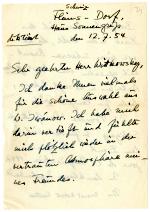 Schweiz
Flims - Dorf,
Haus Sonnenguss
den 12.7.54
Sehr geehrter Herr Witkowsky,
Ich danke Ihnen vielmals
für die schöne Auswahl aus
W. Iwanow. Ich habe mich
darin vertieft und fühlte
mich plötzlich wieder in der
vertrauten Atmosphäre mei-
nes Freundes.